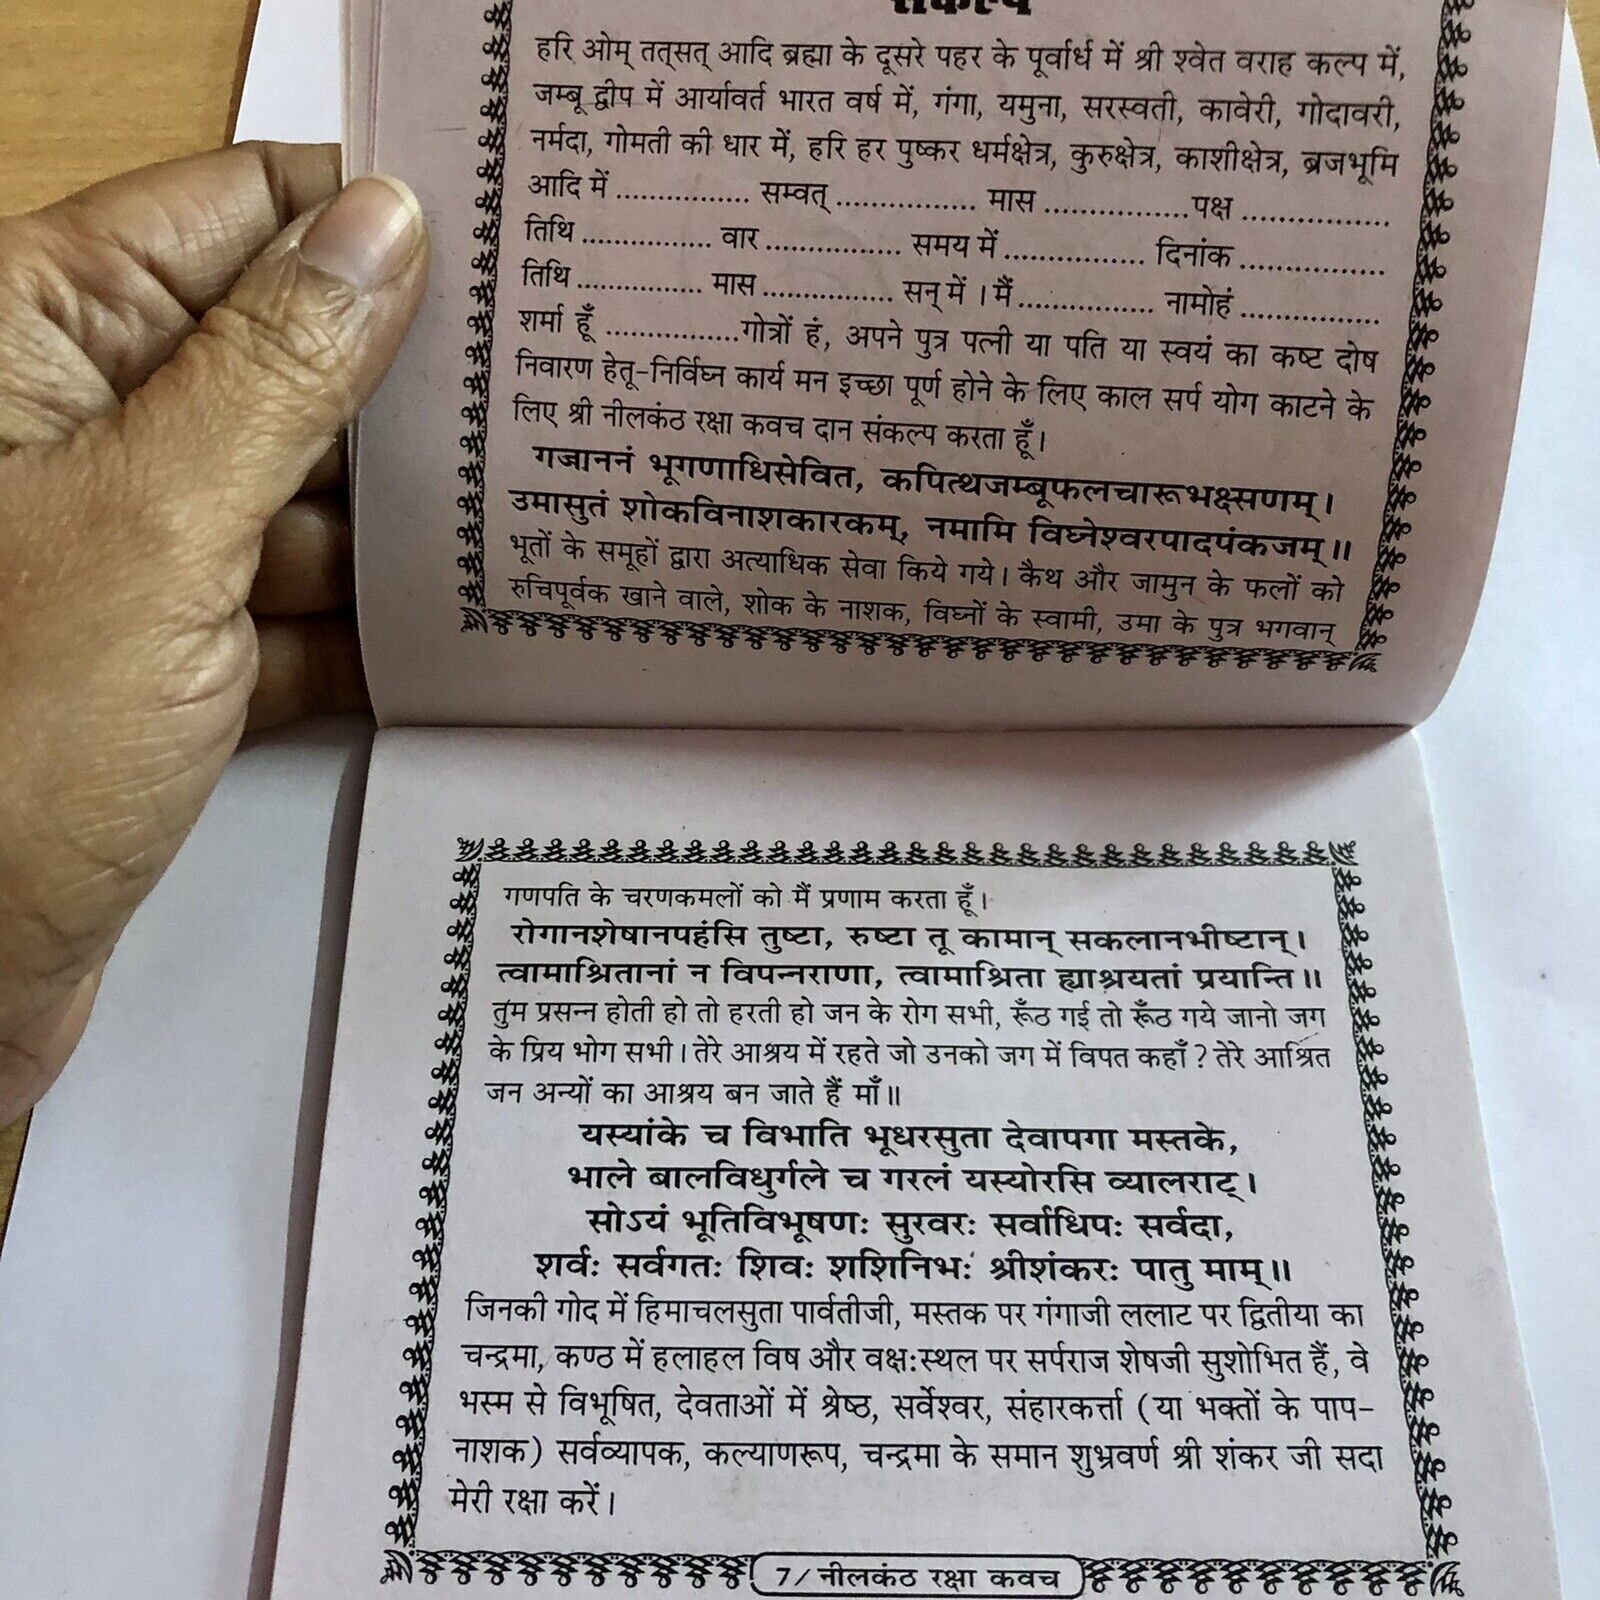 संकल्प
हरि ओम् तत्सत् आदि ब्रह्मा के दूसरे पहर के पूर्वार्ध में श्री श्वेत वराह कल्प में,
जम्बू द्वीप में आर्यावर्त भारत वर्ष में, गंगा, यमुना, सरस्वती, कावेरी, गोदावरी,
नर्मदा, गोमती की धार में, हरि हर पुष्कर धर्मक्षेत्र, कुरुक्षेत्र, काशीक्षेत्र, ब्रजभूमि
आदि में ................ सम्वत् ................. मास .................पक्ष ..................
तिथि ................ वार ................. समय में ................. दिनांक ..................
तिथि ............... मास ................ सन् में । मैं ................. नामोहं .................
शर्मा हूँ ................गोत्रों हं, अपने पुत्र पत्नी या पति या स्वयं का कष्ट दोष
निवारण हेतू-निर्विघ्न कार्य मन इच्छा पूर्ण होने के लिए काल सर्प योग काटने के
लिए श्री नीलकंठ रक्षा कवच दान संकल्प करता हूँ।
गजाननं भूगणाधिसेवित, कपित्थजम्बूफलचारूभक्षसणम्।
उमासुतं शोकविनाशकारकम्, नमामि विघ्नेश्वरपादपंकजम्॥
भूतों के समूहों द्वारा अत्याधिक सेवा किये गये। कैथ और जामुन के फलों को
रुचिपूर्वक खाने वाले, शोक के नाशक, विघ्नों के स्वामी, उमा के पुत्र भगवान्
गणपति के चरणकमलों को मैं प्रणाम करता हूँ।
रोगानशेषानपहंसि तुष्टा, रुष्टा तू कामान् सकलानभीष्टान्।
त्वामाश्रितानां न विपन्नराणा, त्वामाश्रिता ह्याश्रयतां प्रयान्ति॥
तुम प्रसन्न होती हो तो हरती हो जन के रोग सभी, रूँठ गई तो रूँठ गये जानो जग
के प्रिय भोग सभी। तेरे आश्रय में रहते जो उनको जग में विपत कहाँ? तेरे आश्रित
जन अन्यों का आश्रय बन जाते हैं माँ॥
यस्यांके च विभाति भूधरसुता देवापगा मस्तके,
भाले बालविधुर्गले च गरलं यस्योरसि व्यालराट्।
सोऽयं भूतिविभूषणः सुरवरः सर्वाधिपः सर्वदा,
शर्वः सर्वगतः शिवः शशिनिभः श्रीशंकरः पातु माम्॥
जिनकी गोद में हिमाचलसुता पार्वतीजी, मस्तक पर गंगाजी ललाट पर द्वितीया का
चन्द्रमा, कण्ठ में हलाहल विष और वक्षःस्थल पर सर्पराज शेषजी सुशोभित हैं, वे
भस्म से विभूषित, देवताओं में श्रेष्ठ, सर्वेश्वर, संहारकर्त्ता (या भक्तों के पाप-
नाशक) सर्वव्यापक, कल्याणरूप, चन्द्रमा के समान शुभ्रवर्ण श्री शंकर जी सदा
मेरी रक्षा करें।
7/नीलकंठ रक्षा कवच